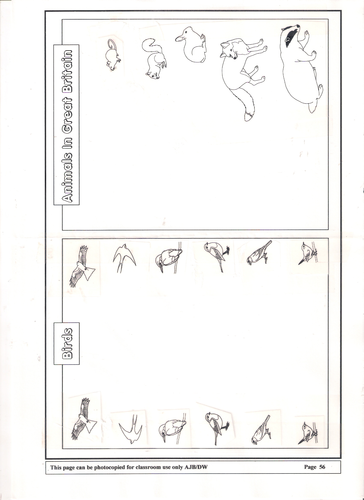 Animals In Great Britain
Birds
This page can be photocopied for classroom use only AJB/DW
Page 56